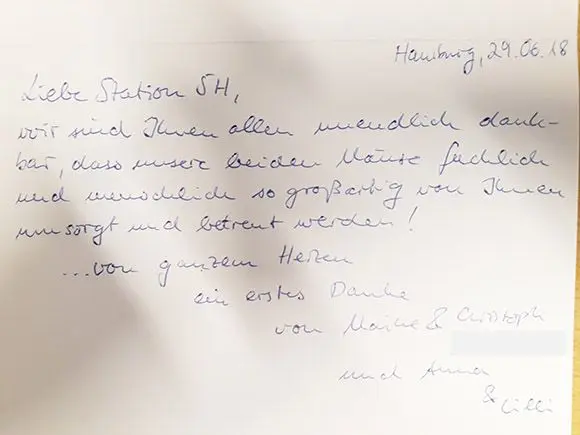 Hamburg, 29.06.18
Liebe Station 5H,
wir sind Ihnen allen unendlich dank-
bar, dass unsere beiden Mäuse fachlich
und menschlich so großartig von Ihnen
umsorgt und betreut werden!
...von ganzem Herzen
ein erstes Danke
von Maike & Christoph
und Anna
& Lilli